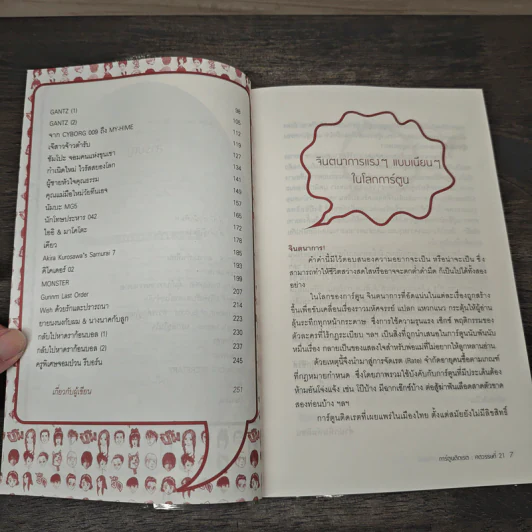 GANTZ (1) 98
GANTZ (2) 105
จาก CYBORG 009 ถึง MY-HIME 112
เจ๊สาวจ้าวตำรับ 119
ชิมโปะ จอมคนแห่งขุนเขา 127
กำเนิดใหม่ ไรรัตดยองโลก 134
ผู้ชายหัวใจคุณธรรม 141
คุณแม่มือใหม่วัยทีนเอจ 149
นัมบะ MG5 157
นักโทษประหาร 042 165
ไฮอิ & มาโคโตะ 172
เดียว 178
Akira Kurosawa's Samurai 7 185
คิไคเดอร์ 02 193
MONSTER 199
Gunnm Last Order 207
Wish ด้วยรักและปรารถนา 214
ยายนงนอกับผม & นางนาคกับลูก 223
กลับไปหาดราก้อนบอล (1) 230
กลับไปหาดราก้อนบอล (2) 237
ครูพิเศษจอมป่วน รีบอร์น 245
เกี่ยวกับผู้เขียน 251
จินตนาการแรงๆ แบบเนียนๆ
ในโลกการ์ตูน
จินตนาการ!
คำคำนี้มีไว้ตอบสนองความอยากจะเป็น หรือน่าจะเป็น ซึ่ง
สามารถทำให้ชีวิตสว่างสดใสหรืออาจจะตกต่ำดำมืด ก็เป็นไปได้ทั้งสอง
อย่าง
ในโลกของการ์ตูน จินตนาการที่อัดแน่นในแต่ละเรื่องถูกสร้าง
ขึ้นเพื่อขับเคลื่อนเรื่องราวมหัศจรรย์ แปลก แหกแนว กระตุ้นให้ผู้อ่าน
ลุ้นระทึกทุกหน้ากระดาษ ซึ่งการใช้ความรุนแรง เซ็กซ์ พฤติกรรมของ
ตัวละครที่ไร้กฎระเบียบ ฯลฯ เป็นสิ่งที่ถูกนำเสนอในการ์ตูนนับพันนับ
หมื่นเรื่อง กลายเป็นของแสลงใจสำหรับพ่อแม่ที่ไม่อยากให้ลูกหลานอ่าน
ด้วยเหตุนี้จึงนำมาสู่การจัดเรต (Rate) จำกัดอายุคนซื้อตามเกณฑ์
ที่กฎหมายกำหนด ซึ่งโดยภาพรวมใช้บังคับกับการ์ตูนที่มีประเด็นต้อง
ห้ามอันโจ่งแจ้ง เช่น โป๊บ้าง มีฉากเซ็กซ์บ้าง ต่อสู้ฆ่าฟันเลือดสาดตัวขาด
สองท่อนบ้าง ฯลฯ
การ์ตูนติดเรตที่เผยแพร่ในเมืองไทย ตั้งแต่สมัยยังไม่มีลิขสิทธิ์
การ์ตูนติดเรต : ทศวรรษที่ 21 7